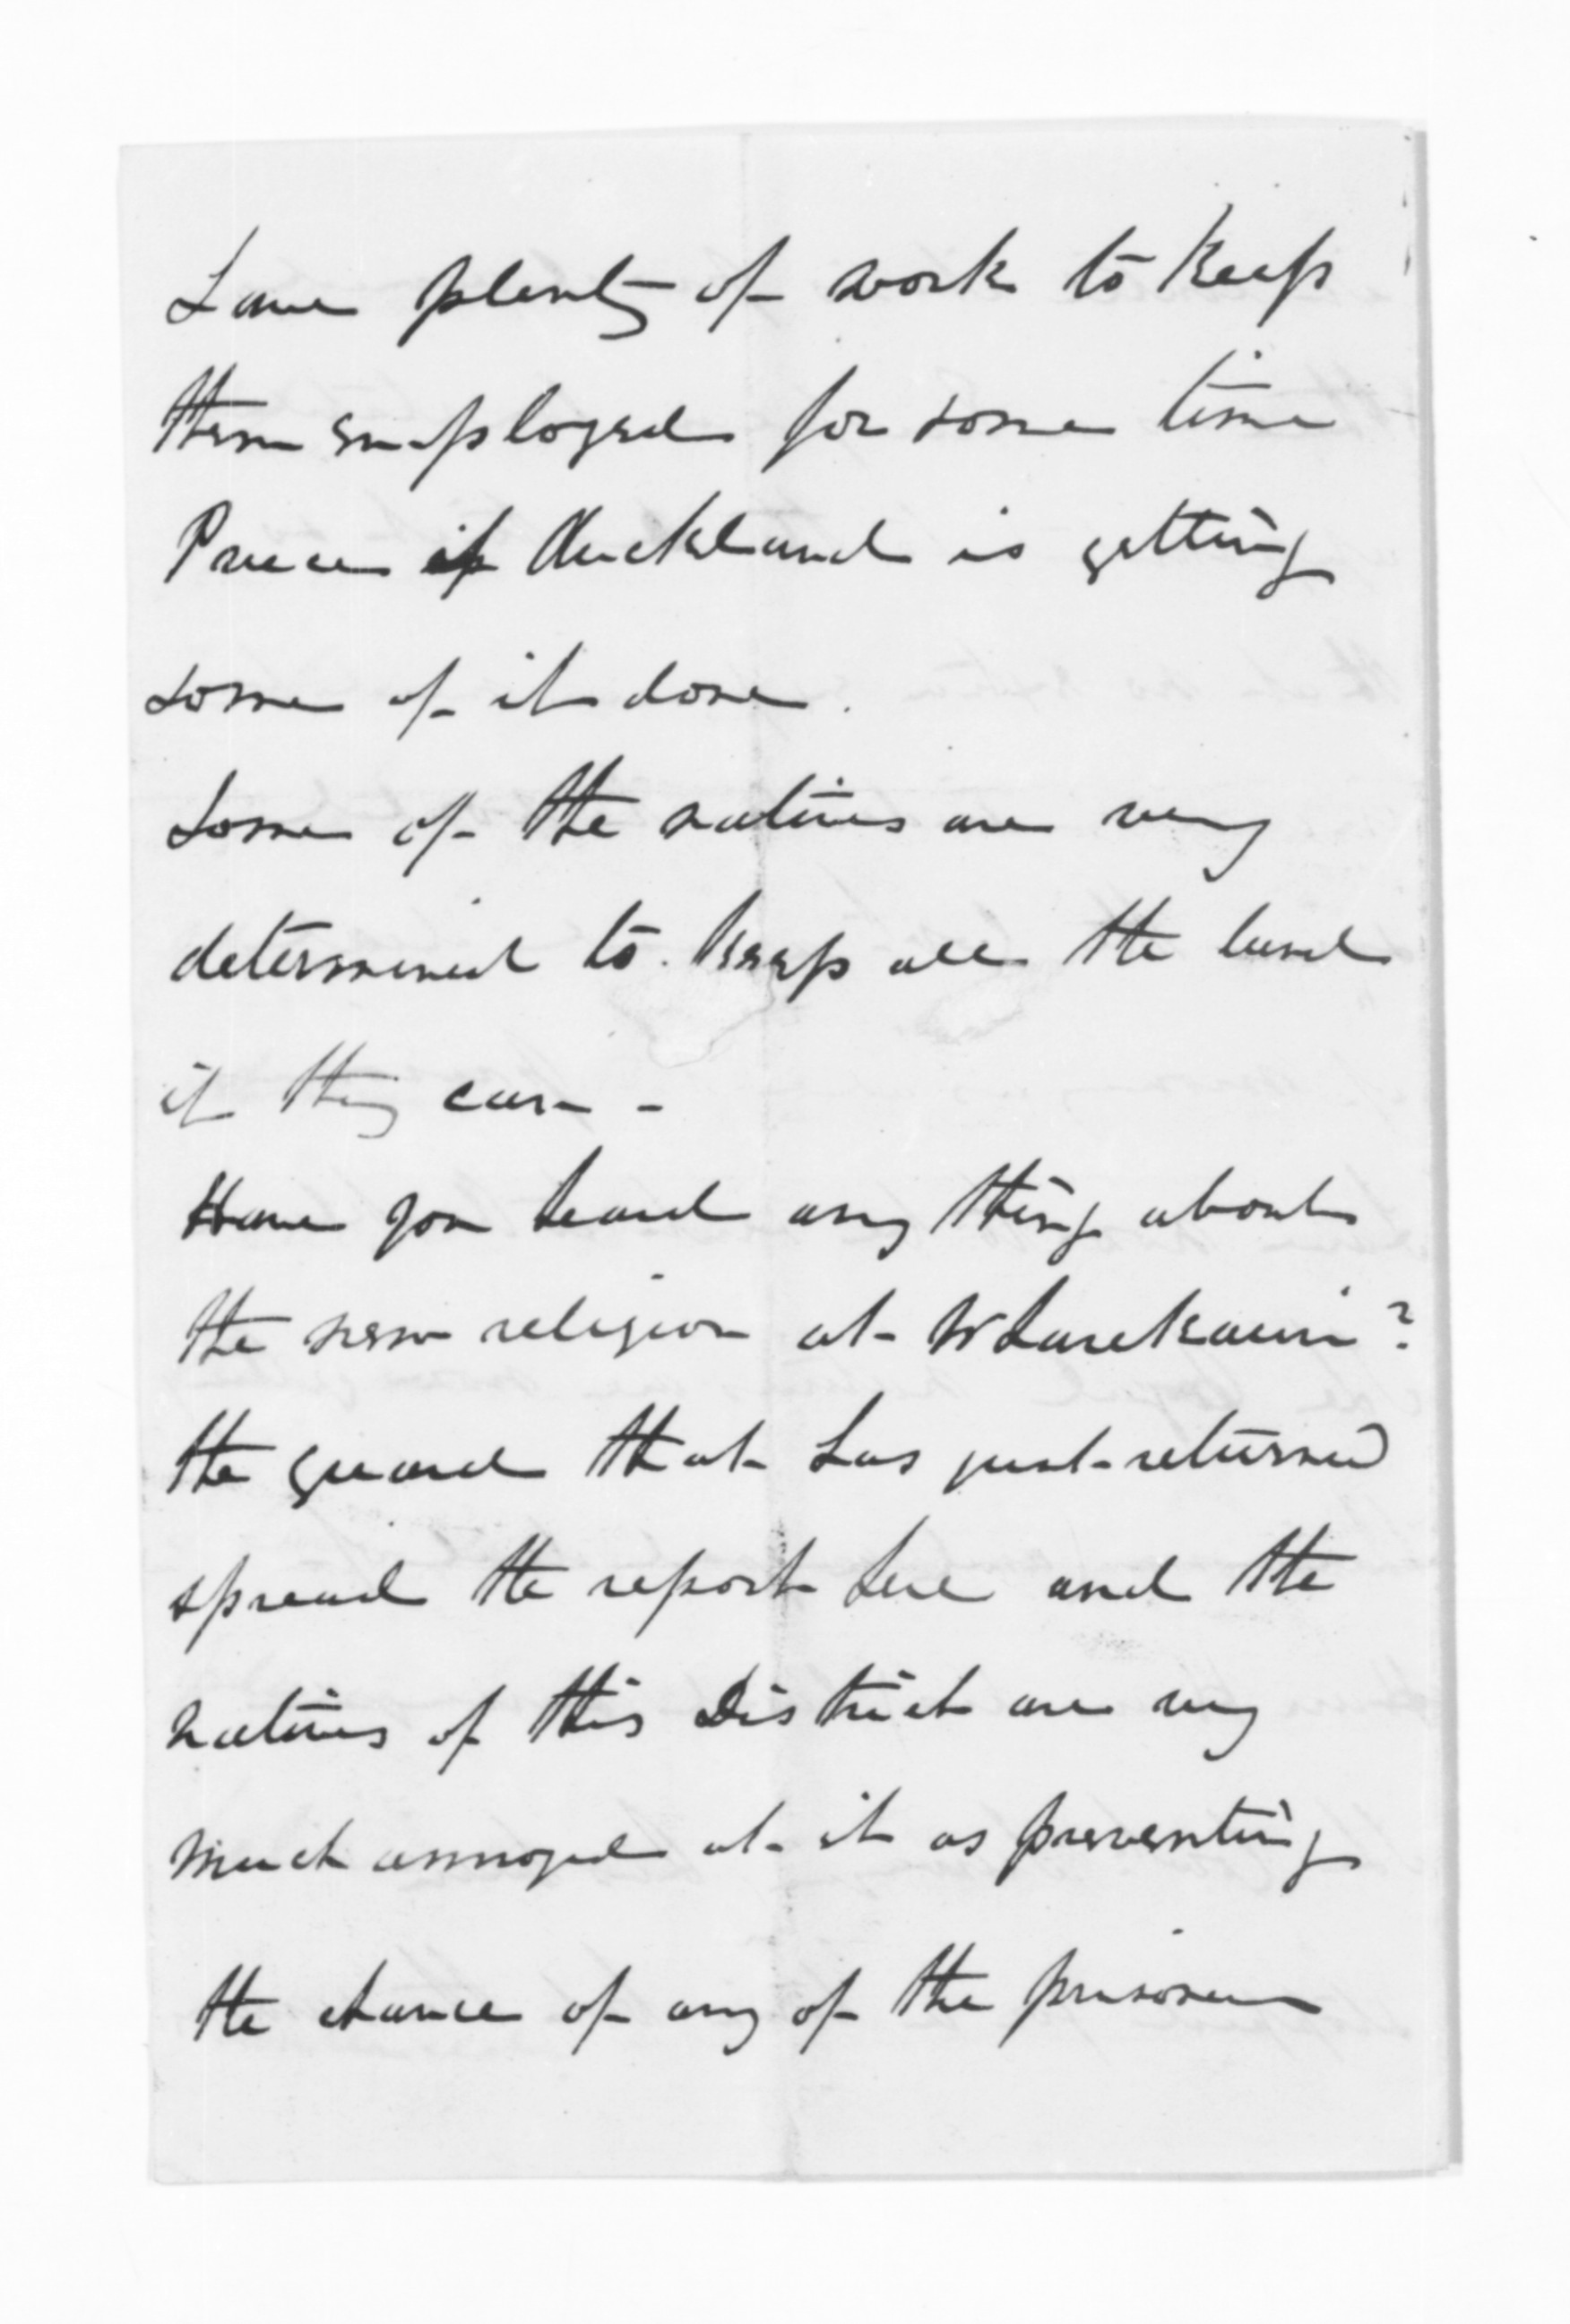 have plenty of work to keep
them employed for some time
Preece of Auckland is getting
some of it done.
Some of the natives are very
determined to keep all the land
if they can -
Have you heard any thing about
the new religion at Wharekauri?
the guard that has just returned
spread the report here and the
natives of this District are very
much annoyed at it as preventing
the chance of any of the prisoners